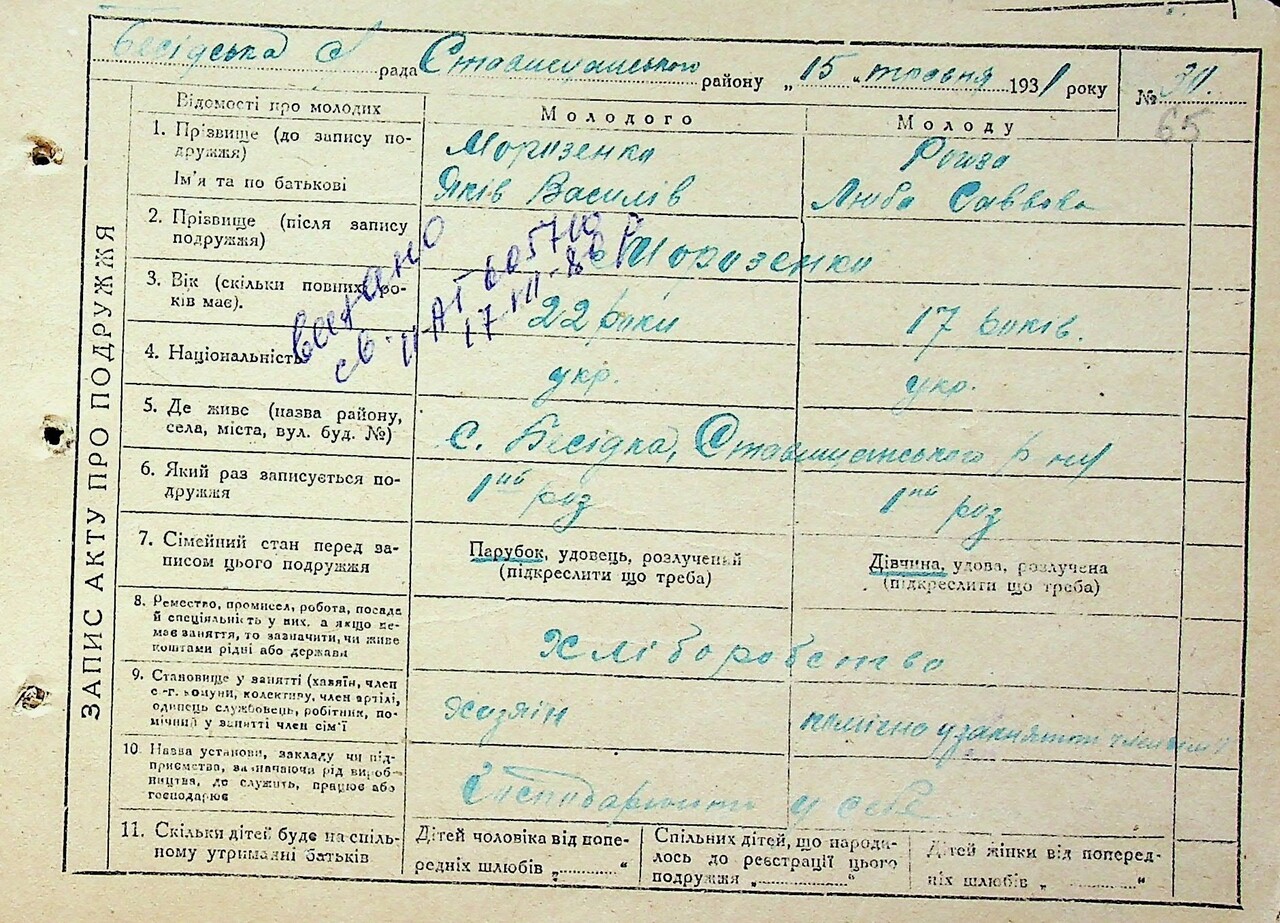 Бесідська с рада Ставищанського району „ 15 „ травня 1931 року
№ 30.
65
ЗАПИС АКТУ ПРО ПОДРУЖЖЯ
Відомості про молодих Молодого Молоду
1. Прізвище (до запису по-
дружжя) Морозенко
Ім'я та по батькові Яків Василів Люба Саввова
2. Прізвище (після запису
подружжя) Морозенки
3. Вік (скільки повних ро-
ків має). 22 роки 17 років.
4. Національність укр. укр.
видано
св. II-АТ 605710
17 VII-80 р
5. Де живе (назва району,
села, міста, вул. буд. №) с. Бесідка, Ставищенського р-ну
6. Який раз записується по-
дружжя 1ий раз 1ий раз
7. Сімейний стан перед за-
писом цього подружжя
Парубок, удовець, розлучений
(підкреслити що треба)
Дівчина, удова, розлучена
(підкреслити що треба)
8. Ремество, промисел, робота, посада
й спеціяльність у них, а якщо не-
має заняття, то зазначити, чи живе
коштами рідні або держави Хліборобство
9. Становище у занятті (хазяїн, член
с.-г. комуни, колективу, член артілі,
одинець службовець, робітник, по-
мічний у занятті член сім'ї Хозяїн
10. Назва установи, закладу чи під-
приємства, зазначаючи рід вироб-
ництва, де служить, працює або
господарює у себе
11. Скільки дітей буде на спіль-
ному утриманні батьків
Дітей чоловіка від попе-
редніх шлюбів „............“
Спільних дітей, що народи-
лось до реєстрації цього
подружжя „............“
Дітей жінки від поперед-
ніх шлюбів „............“